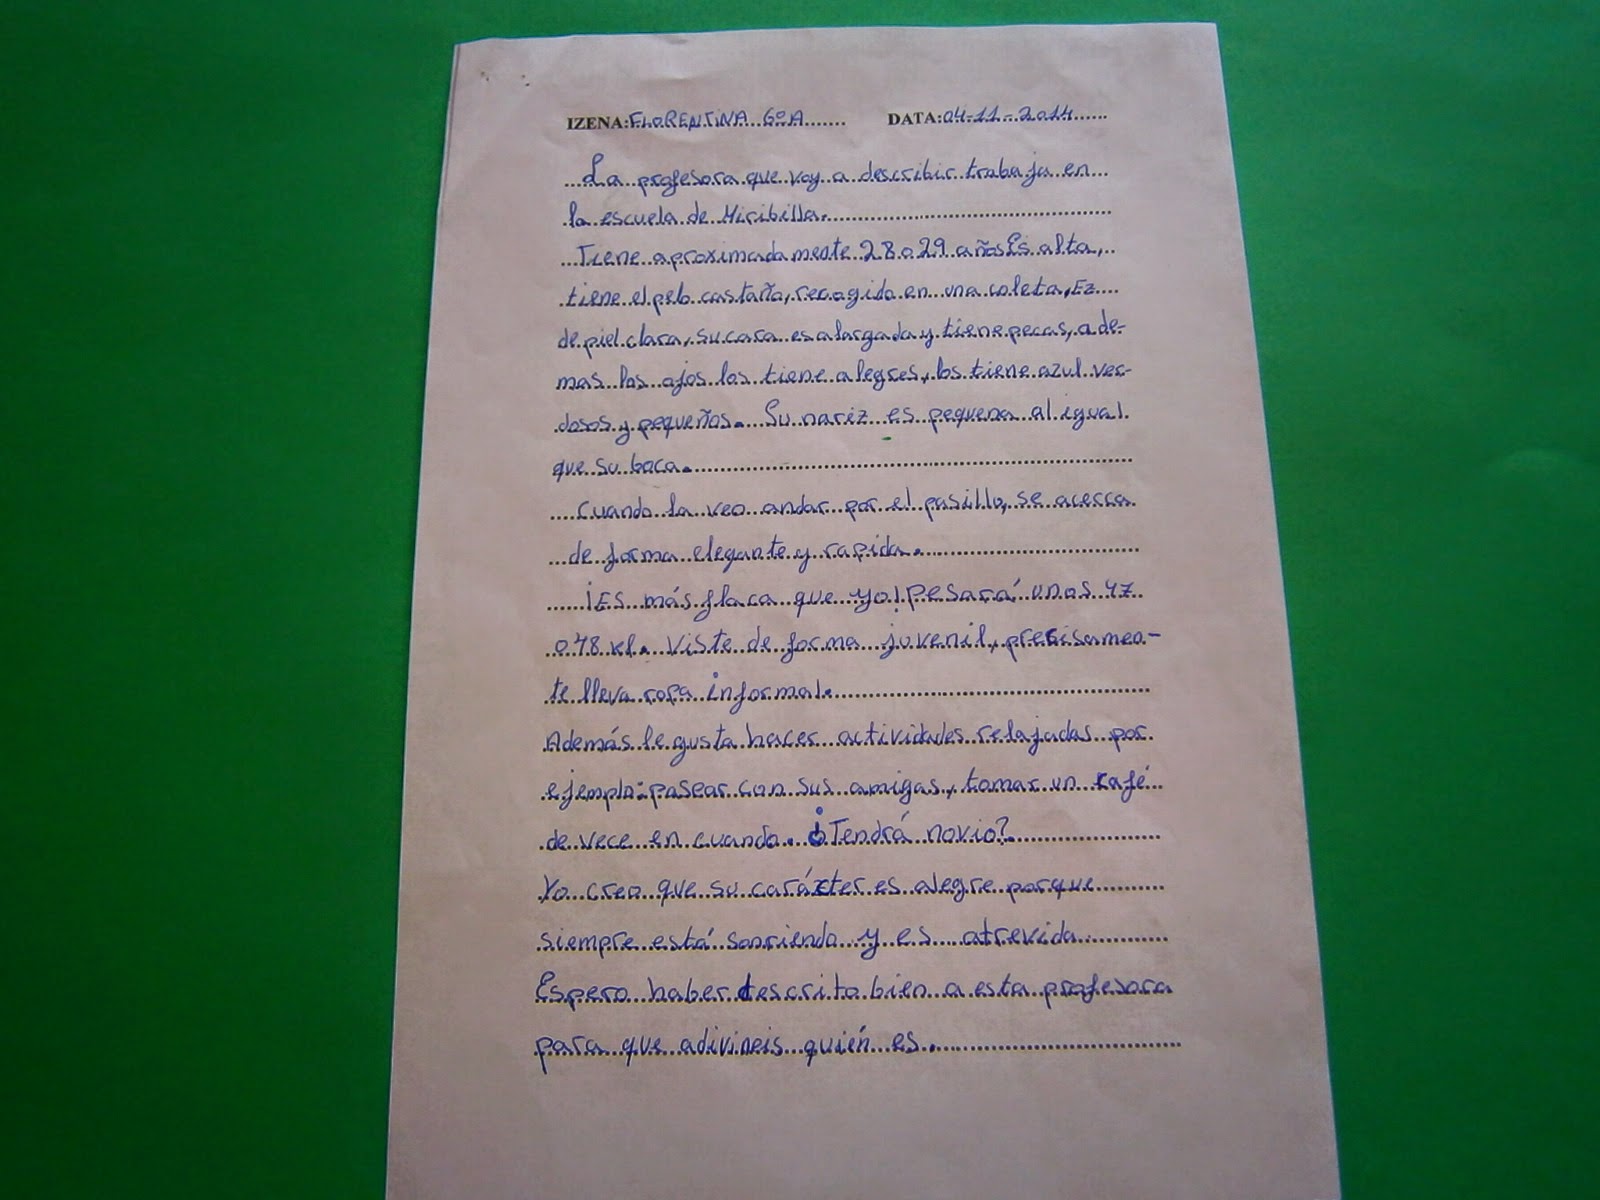 IZENA: FLORENTINA 6ºA DATA: 04-11-2014
La profesora que voy a describir trabaja en
la escuela de Miribilla.
Tiene aproximadamente 28 o 29 años Es alta,
tiene el pelo castaño, recogido en una coleta, Ez
de piel clara, su cara es alargada y tiene pecas, ade-
mas los ojos los tiene alegres, los tiene azul ver-
dosos y pequeños. Su nariz es pequeña al igual
que su boca.
Cuando la veo andar por el pasillo, se acerca
de forma elegante y rapida.
¡Es más flaca que yo! Pesará unos 47
o 48 kl. Viste de forma juvenil, precisamen-
te lleva ropa informal.
Además le gusta hacer actividades relajadas por
ejemplo: pasear con sus amigas, tomar un café
de vece en cuando. ¿Tendrá novio?
Yo creo que su carácter es alegre porque
siempre está sonriendo y es atrevida
Espero haber descrito bien a esta profesora
para que adivineis quién es.